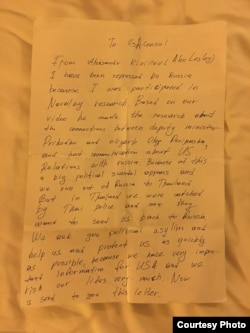 To USA Consul
From Aleksandr Kirillov (Alex Lesley)
I have been repressed by Russia
because I was participated in
Navalny research. Based on our
video he made the research about
the connections between deputy minister
Prikhodko and oligarh Oleg Deripaska,
and communication about US
Relations with russia. Because of this
a big political scandal appears and
we run out of Russia to Thailand
But in Thailand we were catched
by Thai police and now they
wanted to send us back to Russia,
We ask you political asylim and
help us and protect us as quickly
as possible, because we have very impor-
tant information for USA and we
risk our lives very much. Now
is send to you this letter.
Courtesy Photo